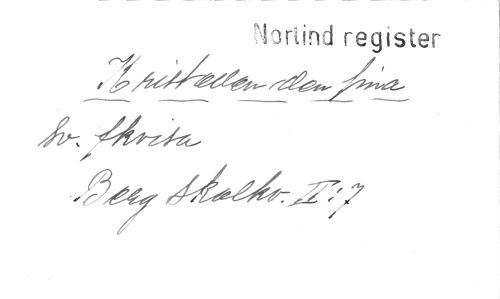 Norlind register
Kristallen den fina
sv. fkvisa
Berg Skalkv. II:7